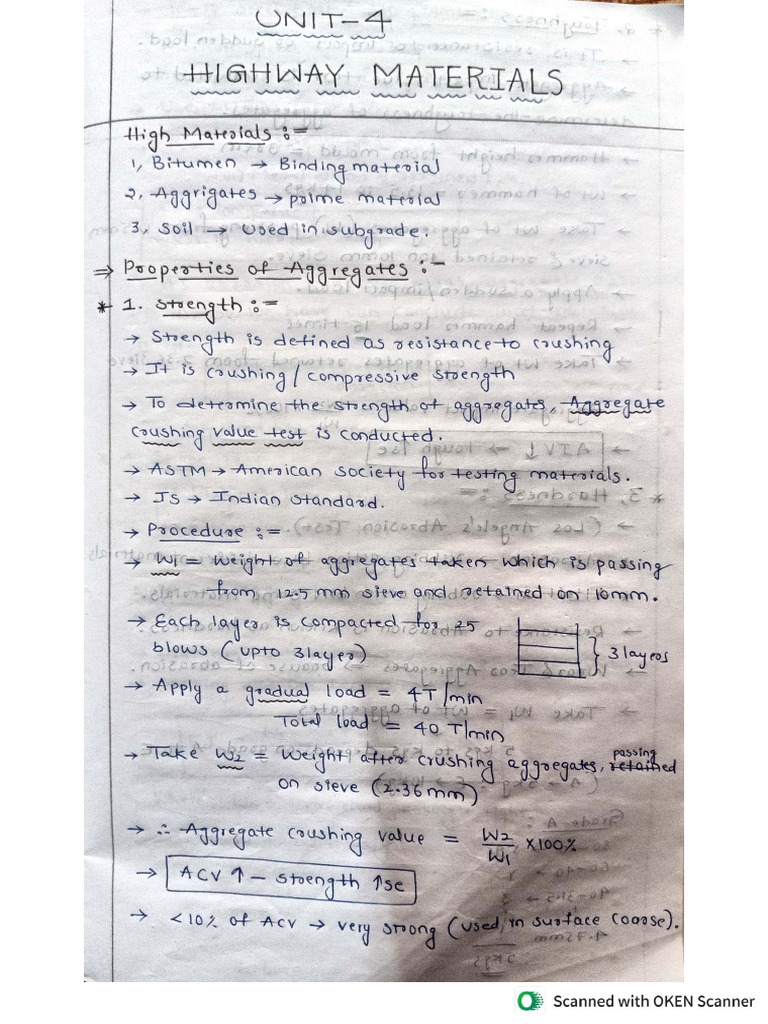 UNIT-4
HIGHWAY MATERIALS
High Materials :-
1, Bitumen → Binding material
2, Aggrigates → prime material
3, Soil → used in subgrade.
⇒ Properties of Aggregates :-
* 1. Strength :-
→ Strength is defined as resistance to crushing
→ It is crushing / compressive strength
→ To determine the strength of aggregates, Aggregate
crushing value test is conducted.
→ ASTM → American society for testing materials.
→ IS → Indian Standard.
→ Procedure :-
→ W1 = weight of aggregates taken which is passing
from 12.5 mm sieve and retained on 10mm.
→ Each layer is compacted for 25
blows (upto 3 layer)
3 layers
→ Apply a gradual load = 4T/min
Total load = 40 T/min
→ Take W2 = weight after crushing aggregates, passing retained
on sieve (2.36mm)
→ ∴ Aggregate crushing value = W2/W1 X100%
→ ACV ↑ – strength ↑se
→ <10% of ACV → very strong (used in surface coarse).
Scanned with OKEN Scanner